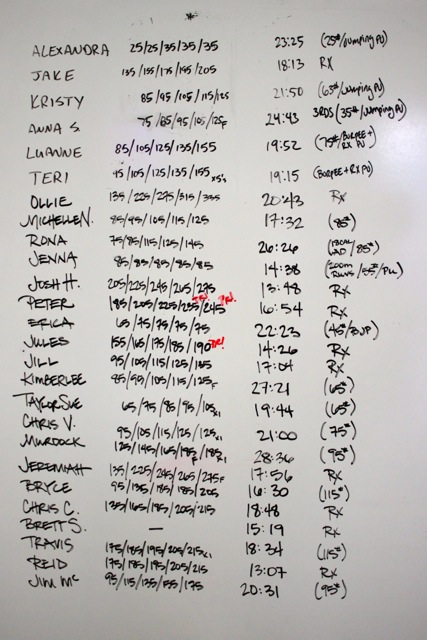 ALEXANDRA 25/25/35/35/35 23:25 (25#/Jumping PU)
JAKE 135/155/175/195/205 18:13 RX
KRISTY 85/95/105/115/125 21:50 (65#/Jumping PU)
ANNA S. 75/85/95/105/125F 24:43 3RDS (35#/Jumping PU)
LUANNE 85/105/125/135/155 19:52 (75#/BURPEE + RX PU)
TERI 95/105/125/135/155 x5's 19:15 (BURPEE + RX PU)
OLLIE 135/225/275/315/355 20:43 Rx
MICHELLE N. 85/95/105/115/125 17:32 (85#)
RONA 75/85/115/125/145 26:26 /85#)
JENNA 85/85/85/85/85 14:38 (200m
JOSH H. 205/225/245/265/275 13:48 Rx
PETER 185/205/225/235/245 PR! PR! 16:54 Rx
ERICA 65/75/75/75/75 22:23 (45#
JULES 155/165/175/185/190 PR! 14:26 Rx
JILL 95/105/115/125/135 17:04 Rx
KIMBERLEE 85/95/105/115/125F 27:21 (65#)
TAYLOR SUE 65/75/85/95/105x1 19:44 (65#)
CHRIS V. 95/105/115/125/125x1 21:00 (75#)
MURDOCK 125/145/165/185F/185x1 28:36 (95#)
JEREMIAH 135/225/245/265/275F 17:56 Rx
BRYCE 95/135/185/185/205 16:30 (115#)
CHRIS C. 135/165/185/205/215 18:48 Rx
BRETT S. — 15:19 Rx
TRAVIS 175/185/195/205/215x1 18:34 (115#)
REID 175/185/195/205/215 13:07 Rx
JIM MC 95/115/135/155/175 20:31 (95#)